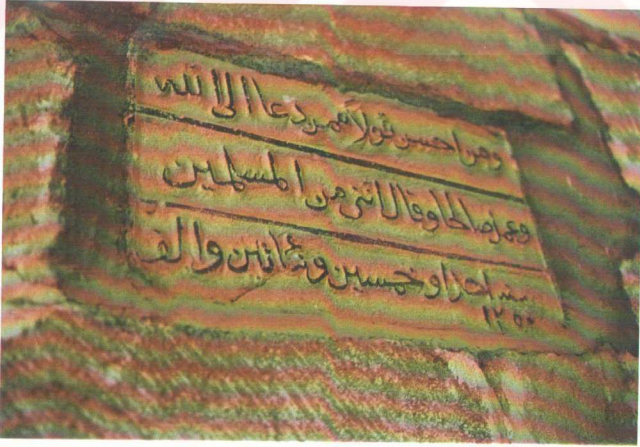 ومن احسن قولا ممن دعا الى الله
وعمل صالحا وقال انني من المسلمين
سنه احدا و خمسين و مأتين والف
١٢٥٠